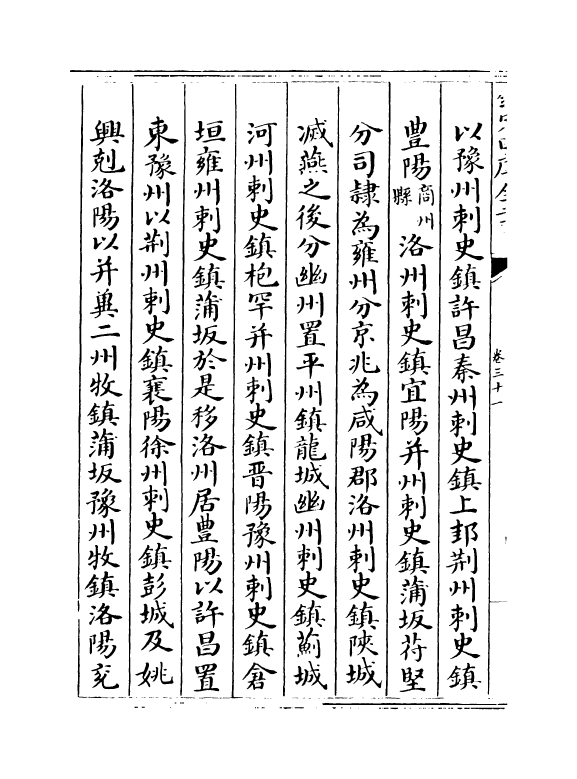 卷三十一
以豫州刺史鎮許昌秦州刺史鎮上邽荆州刺史鎮
豐陽商州縣洛州刺史鎮宜陽并州刺史鎮蒲坂苻堅
分司隷為雍州分京兆為咸陽郡洛州刺史鎮陜城
滅燕之後分幽州置平州鎮龍城幽州刺史鎮薊城
河州刺史鎮枹罕并州刺史鎮晉陽豫州刺史鎮倉
垣雍州刺史鎮蒲坂於是移洛州居豐陽以許昌置
東豫州以荆州刺史鎮襄陽徐州刺史鎮彭城及姚
興剋洛陽以并冀二州牧鎮蒲坂豫州牧鎮洛陽兖